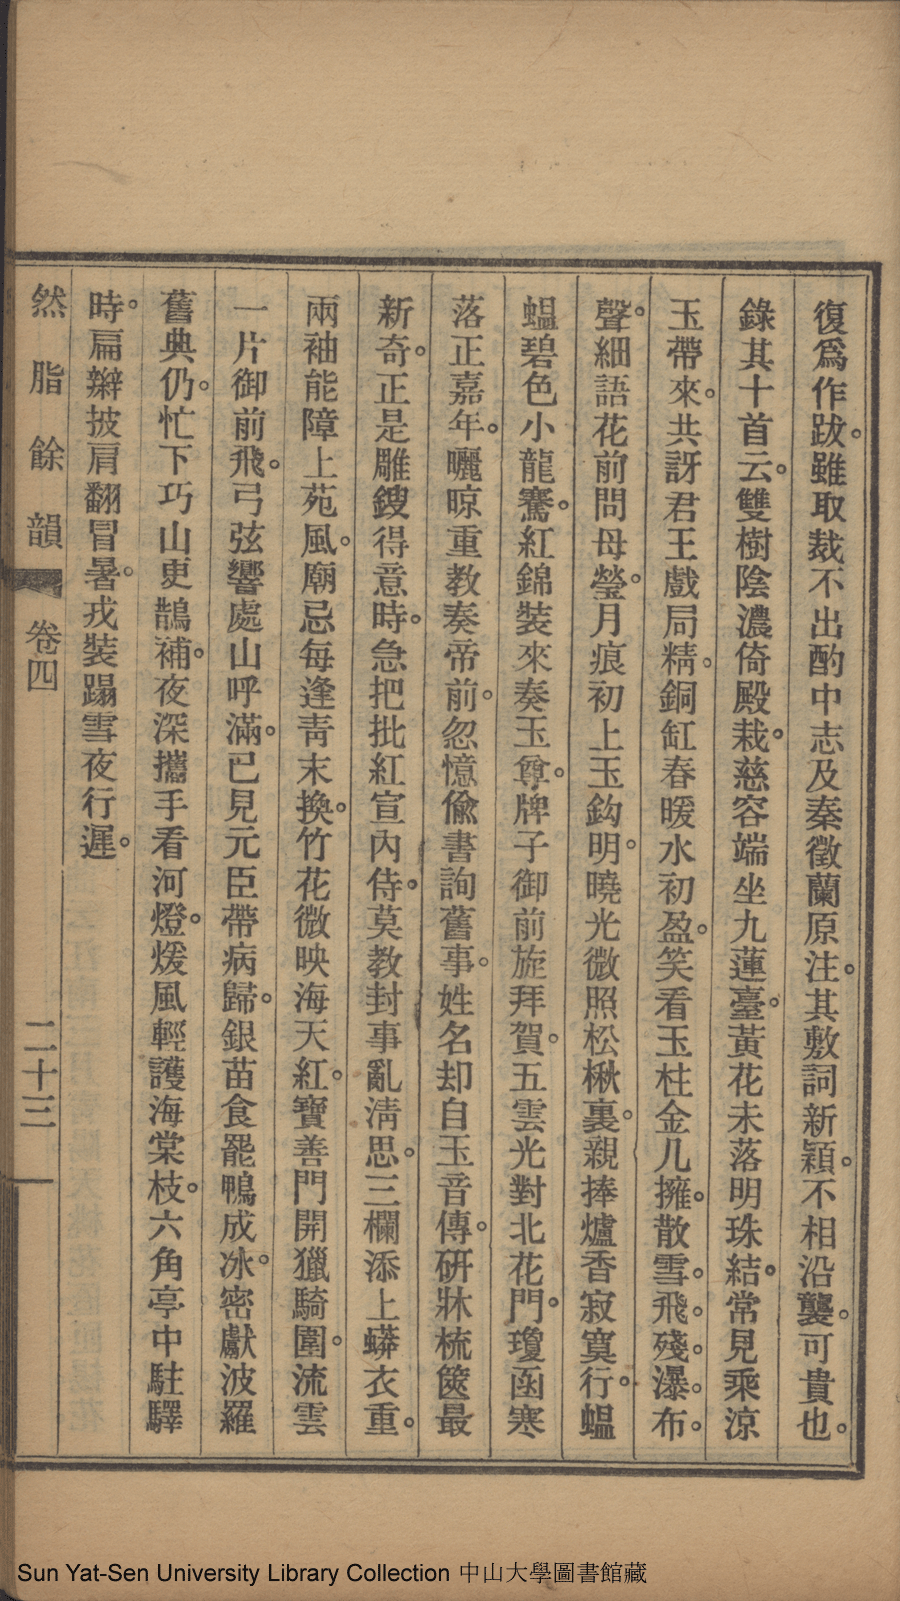 復爲作跋。雖取裁不出酌中志及秦徵蘭原注。其敷詞新穎。不相沿襲。可貴也。
錄其十首云。雙樹陰濃倚殿栽。慈容端坐九蓮臺。黃花未落明珠結。常見乘涼
玉帶來。共訝君王戲局精。銅缸春暖水初盈。笑看玉柱金几擁。散雪。飛。殘。瀑。布。
聲。細語花前問母瑩。月痕初上玉鈎明。曉光微照松楸裏。親捧爐香寂寞行。蝹
蝹碧色小龍騫。紅錦裝來奏玉尊。牌子御前旋拜賀。五雲光對北花門。瓊函寒
落正嘉年。曬晾重教奏帝前。忽憶儉書詢舊事。姓名却自玉音傳。硏牀梳篋最
新奇。正是雕鎪得意時。急把批紅宣內侍。莫教封事亂淸思。三欄添上蟒衣重。
兩袖能障上苑風。廟忌每逢靑末換。竹花微映海天紅。寶善門開獵騎圍。流雲
一片御前飛。弓弦響處山呼滿。已見元臣帶病歸。銀苗食罷鴨成冰。密獻波羅
舊典仍。忙下巧山吏鵲補。夜深攜手看河燈。煖風輕護海棠枝。六角亭中駐驛
時。扁辮披肩翻冒暑。戎裝蹋雪夜行遲。
然脂餘韻 卷四 二十三
Sun Yat-Sen University Library Collection 中山大學圖書館藏